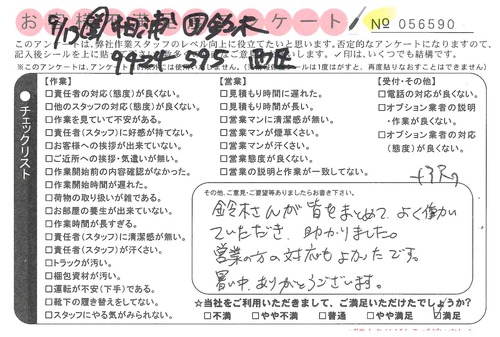 お客様 アンケート
№ 056590
9/13 園 相原 四 鈴木
このアンケートは、弊社作業スタッフのレベル向上に役立てたいと思います。否定的なアンケートになりますので、
記入後シールを上に貼って
ご意見 お願いします。✓印は、いくつでも結構です。
※このアンケートは、
チェックリスト
【作業】
□責任者の対応(態度)が良くない。
□他のスタッフの対応(態度)が良くない。
□作業を見ていて不安がある。
□責任者(スタッフ)に好感が持てない。
□お客様への挨拶が出来ていない。
□ご近所への挨拶・気遣いが無い。
□作業開始前の内容確認がなかった。
□作業開始時間が遅れた。
□荷物の取り扱いが雑である。
□お部屋の養生が出来ていない。
□作業時間が長すぎる。
□責任者(スタッフ)に清潔感が無い。
□責任者(スタッフ)が汗くさい。
□トラックが汚い。
□梱包資材が汚い。
□運転が不安(下手)である。
□靴下の履き替えをしてない。
□スタッフにやる気がみられない。
【営業】
□見積もり時間に遅れた。
□見積もり時間が長い。
□営業マンに清潔感が無い。
□営業マンが煙草くさい。
□営業マンが汗くさい。
□営業態度が良くない。
□営業の説明と作業が一致してない。
【受付・その他】
□電話の対応が良くない。
□オプション業者の説明
・作業が良くない。
□オプション業者の対応
(態度)が良くない。
その他、ご意見・ご要望等ありましたらお書き下さい。
鈴木さんが皆をまとめて、よく働い
ていただき、助かりました。
営業の方の対応もよかったです。
暑い中、ありがとうございます。
☆当社をご利用いただきまして、ご満足いただけたでしょうか?
□不満 □やや不満 □普通 □やや満足 ☑満足